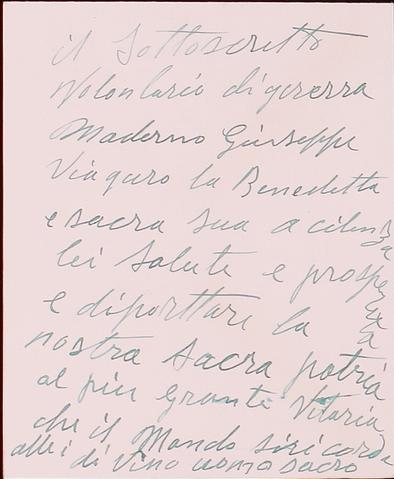 il Sottoscretto
Volontario di gerra
Maderno Giuseppe
Viaguro la Benedetta
e sacra sua acilenza
lei salute e prosperita
e diporttare la
nostra sacra patria
al piu grante Vitoria
che il Mondo siricorda
di Vino uomo sacro